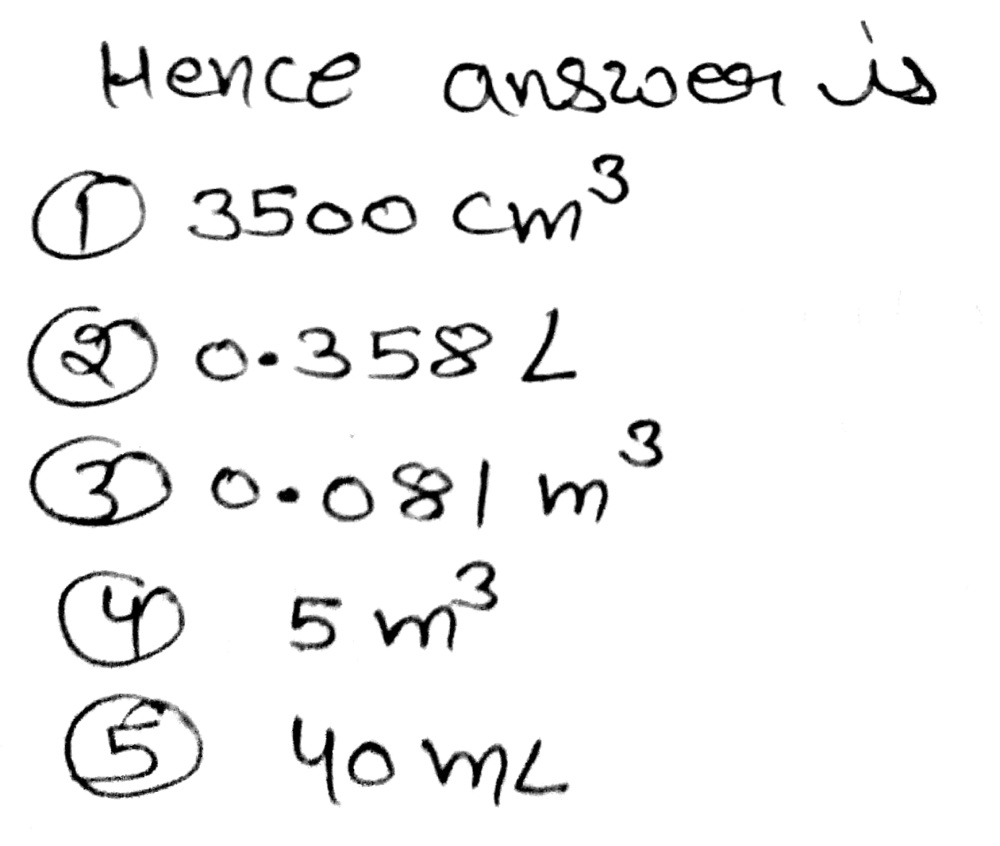 Hence answer is
① 3500 cm³
② 0.358 L
③ 0.081 m³
④ 5 m³
⑤ 40 mL